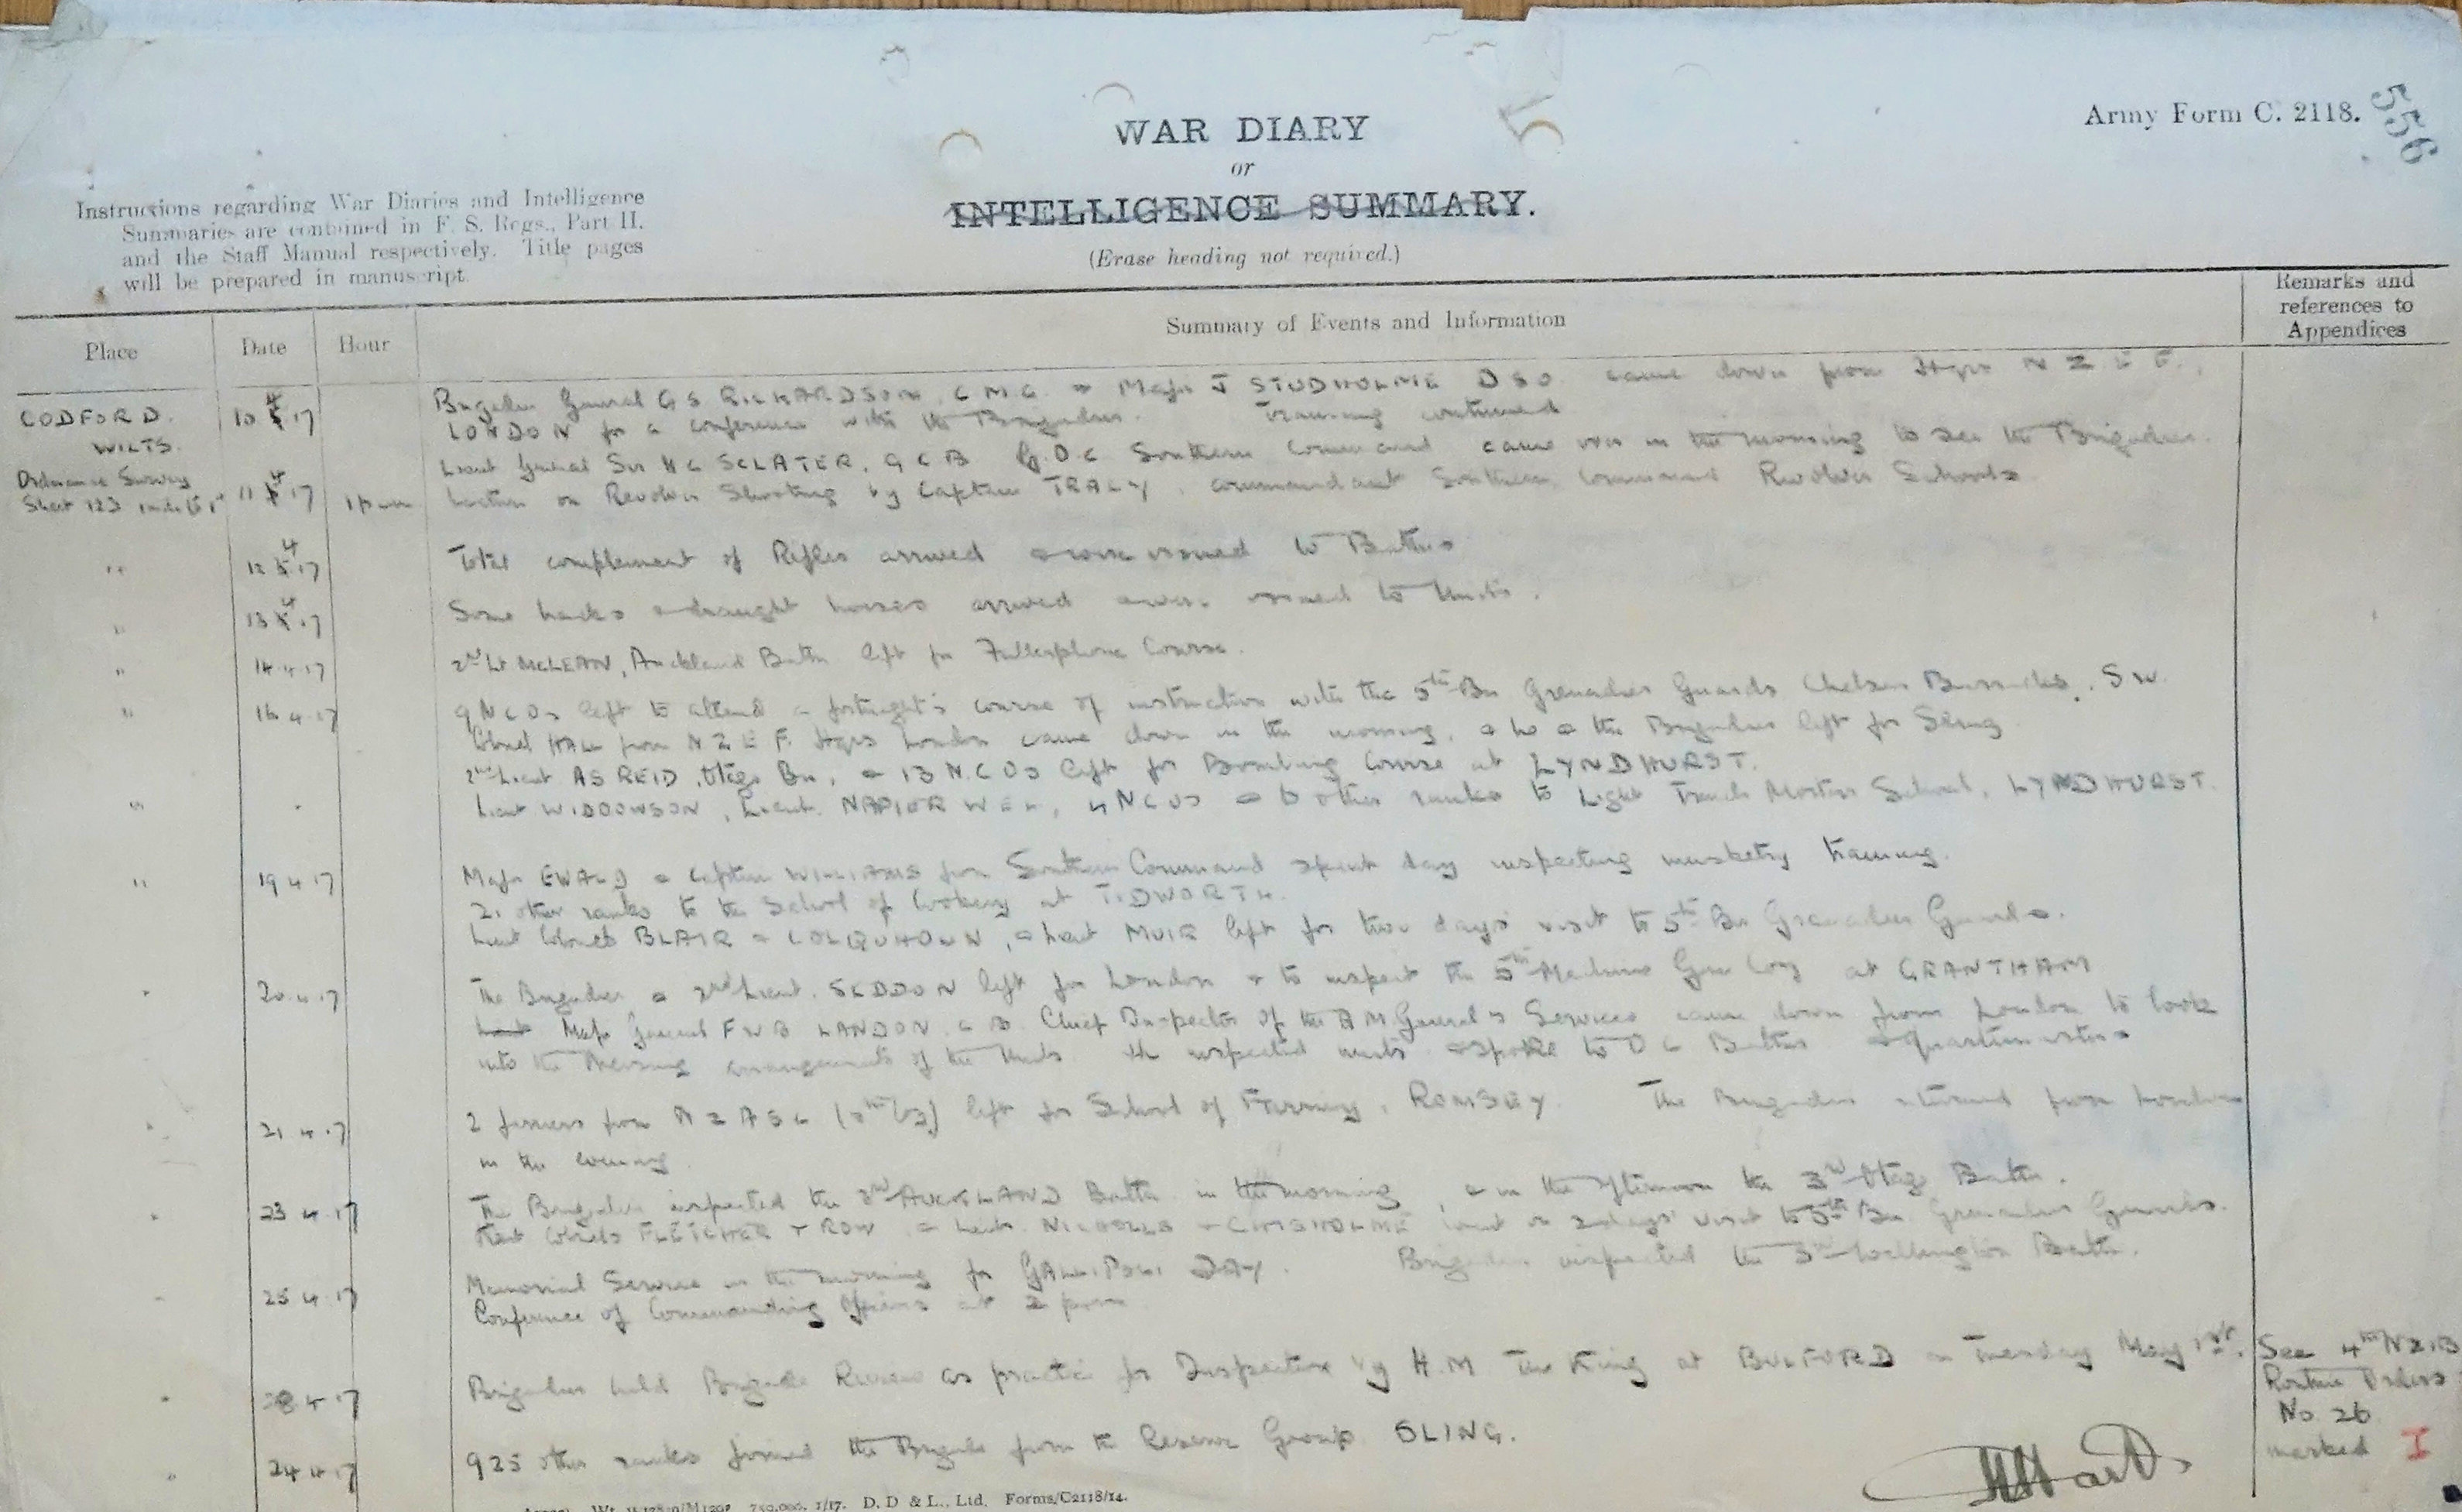 Army Form C. 2118.
556
5
WAR DIARY
or
INTELLIGENCE SUMMARY.
(Erase heading not required.)
Instructions regarding War Diaries and Intelligence
Summaries are contained in F. S. Regs., Part II.
and the Staff Manual respectively. Title pages
will be prepared in manuscript.
Place
Date
Hour
Summary of Events and Information
Remarks and
references to
Appendices
CODFORD.
WILTS.
10 4 17
Brigadier General G S RICHARDSON, C M G. & Major J STUDHOLME D S O. came down from Hqrs N Z E F.,
LONDON for a conference with the Brigadier. Training continued
Ordnance Survey
Sheet 123
11 4 17
1 pm
Lieut General Sir H C SCLATER, G C B G.O.C Southern Command came over in the morning to see the Brigadier.
Lecture on Revolver Shooting by Captain TRACY, Commandant Southern Command Revolver Schools
" 12 4 17
Total complement of Rifles arrived & were issued to Battns
" 13 4 17
Some hacks & draught horses arrived & were issued to Units.
" 14 4 17
2nd Lt McLEAN, Auckland Battn left for Fullerphone Course.
" 16 4 17
9 N C Os left to attend a fortnight's course of instruction with the 5th Bn Grenadier Guards Chelsea Barracks, S W.
Colonel HALL from N Z E F. Hqrs London came down in the morning, & he & the Brigadier left for Sling
2nd Lieut A S REID, Otago Bn, & 13 N.C Os left for Bombing Course at LYNDHURST.
" Lieut WIDDOWSON, Lieut. NAPIER, 4 N C Os & 6 other ranks to Light Trench Mortar School, LYNDHURST.
" 19 4 17
Major EWALD & Captain WILLIAMS from Southern Command spent day inspecting musketry training.
21 other ranks to the School of Cookery at TIDWORTH.
Lieut Colonels BLAIR & COLQUHOUN, & Lieut MUIR left for two days' visit to 5th Bn Grenadier Guards.
" 20 4 17
The Brigadier & 2nd Lieut. SEDDON left for London & to inspect the 5th Machine Gun Coy at GRANTHAM
Major General F W B LANDON. C B. Chief Inspector of the Q M General's Services came down from London to look
into the Messing arrangements of the Units. He inspected units & spoke to O C Battns & Quartermasters
" 21 4 17
2 farriers from N Z A S C left for School of Farriery, ROMSEY. The Brigadier returned from London
in the evening.
" 23 4 17
The Brigadier inspected the 3rd AUCKLAND Battn in the morning, & in the afternoon the 3rd Otago Battn.
Lieut Colonels FLETCHER & ROW & Lieuts. NICHOLLS & CHISHOLME went on 2 days' visit to 5th Bn Grenadier Guards.
" 25 4 17
Memorial Service in the morning for GALLIPOLI DAY. Brigadier inspected the 3rd Wellington Battn.
Conference of Commanding Officers at 2 pm
" 28 4 17
Brigadier held Brigade Review as practice for Inspection by H.M The King at BULFORD on Tuesday May 1st.
See 4th N Z I B
Routine Orders
No. 26
marked I
" 24 4 17
925 other ranks joined the Brigade from the Reserve Group SLING.
Hart
750,000. 1/17. D. D & L., Ltd. Forms/C2118/14.